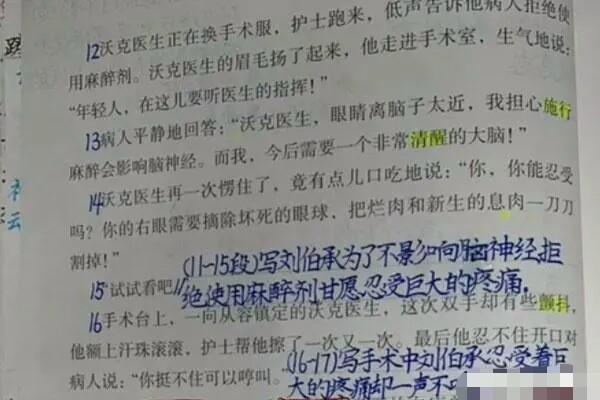 12沃克医生正在换手术服，护士跑来，低声告诉他病人拒绝使
用麻醉剂。沃克医生的眉毛扬了起来，他走进手术室，生气地说：
“年轻人，在这儿要听医生的指挥！”
13病人平静地回答：“沃克医生，眼睛离脑子太近，我担心施行
麻醉会影响脑神经。而我，今后需要一个非常清醒的大脑！”
14沃克医生再一次愣住了，竟有点儿口吃地说：“你，你能忍受
吗？你的右眼需要摘除坏死的眼球，把烂肉和新生的息肉一刀刀
割掉！”
(11-15段)写刘伯承为了不影响脑神经拒
15“试试看吧
绝使用麻醉剂甘愿忍受巨大的疼痛。
16手术台上，一向从容镇定的沃克医生，这次双手却有些颤抖，
他额上汗珠滚滚，护士帮他擦了一次又一次。最后他忍不住开口对
病人说：“你挺不住可以哼叫。
(16-17)写手术中刘伯承忍受着巨
大的疼痛却一声不